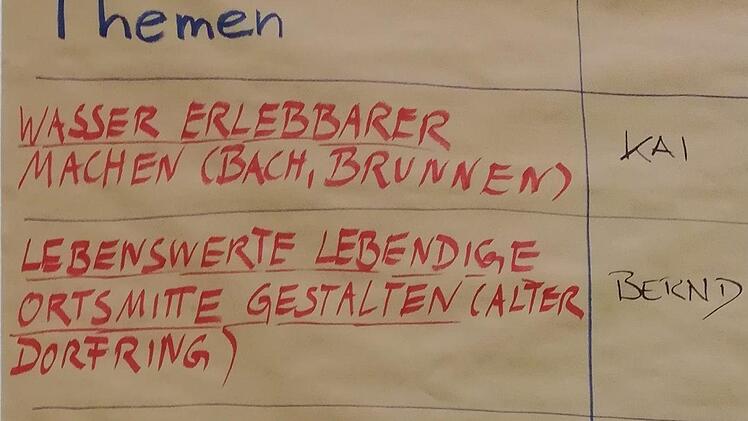 Themen
WASSER ERLEBBARER
MACHEN (BACH, BRUNNEN)
KAI
LEBENSWERTE LEBENDIGE
ORTSMITTE GESTALTEN (ALTER
DORFRING)
BERND